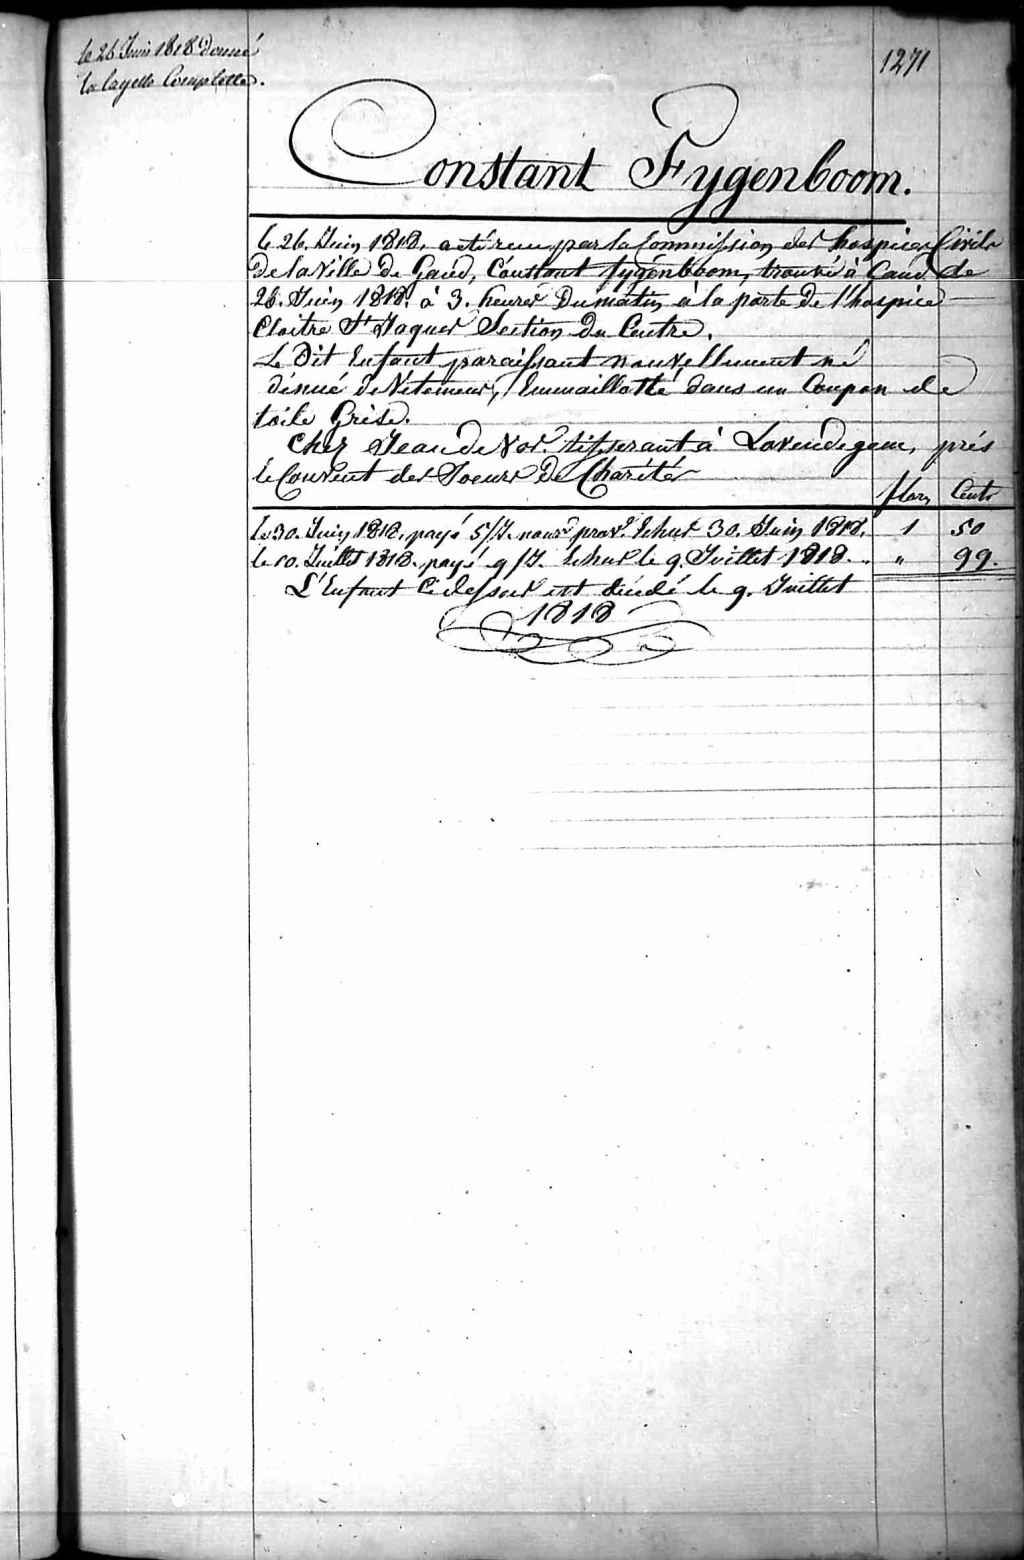 le 26 Juin 1818 donné
la layette Complette.
1271
Constant Fygenboom.
le 26. Juin 1818. a été reçu par la Commission des hospices Civils
De la Ville De Gand, Constant fygenboom, trouvé à Gand le
26. Juin 1818. à 3. heures Du matin à la porte De l'hospice
Cloitre St Jaques Section Du Centre.
Le Dit Enfant paraissant nouvellement né
dénué de Vetemens, Emmaillotté dans un Coupon de
toile Grise.
Chez Jean de Vos tisserant à Lovendegem, prés
le Couvent des Soeurs De Charité
flor. Cents
le 30. Juin 1818. payé 5/J. nour.^e prov.^e Echus 30. Juin 1818. 1 50
le 10. Juillet 1818. payé 9/J. Echus le 9. Juillet 1818. .. " 99.
L'Enfant Cidessus est décédé le 9. Juillet
1818